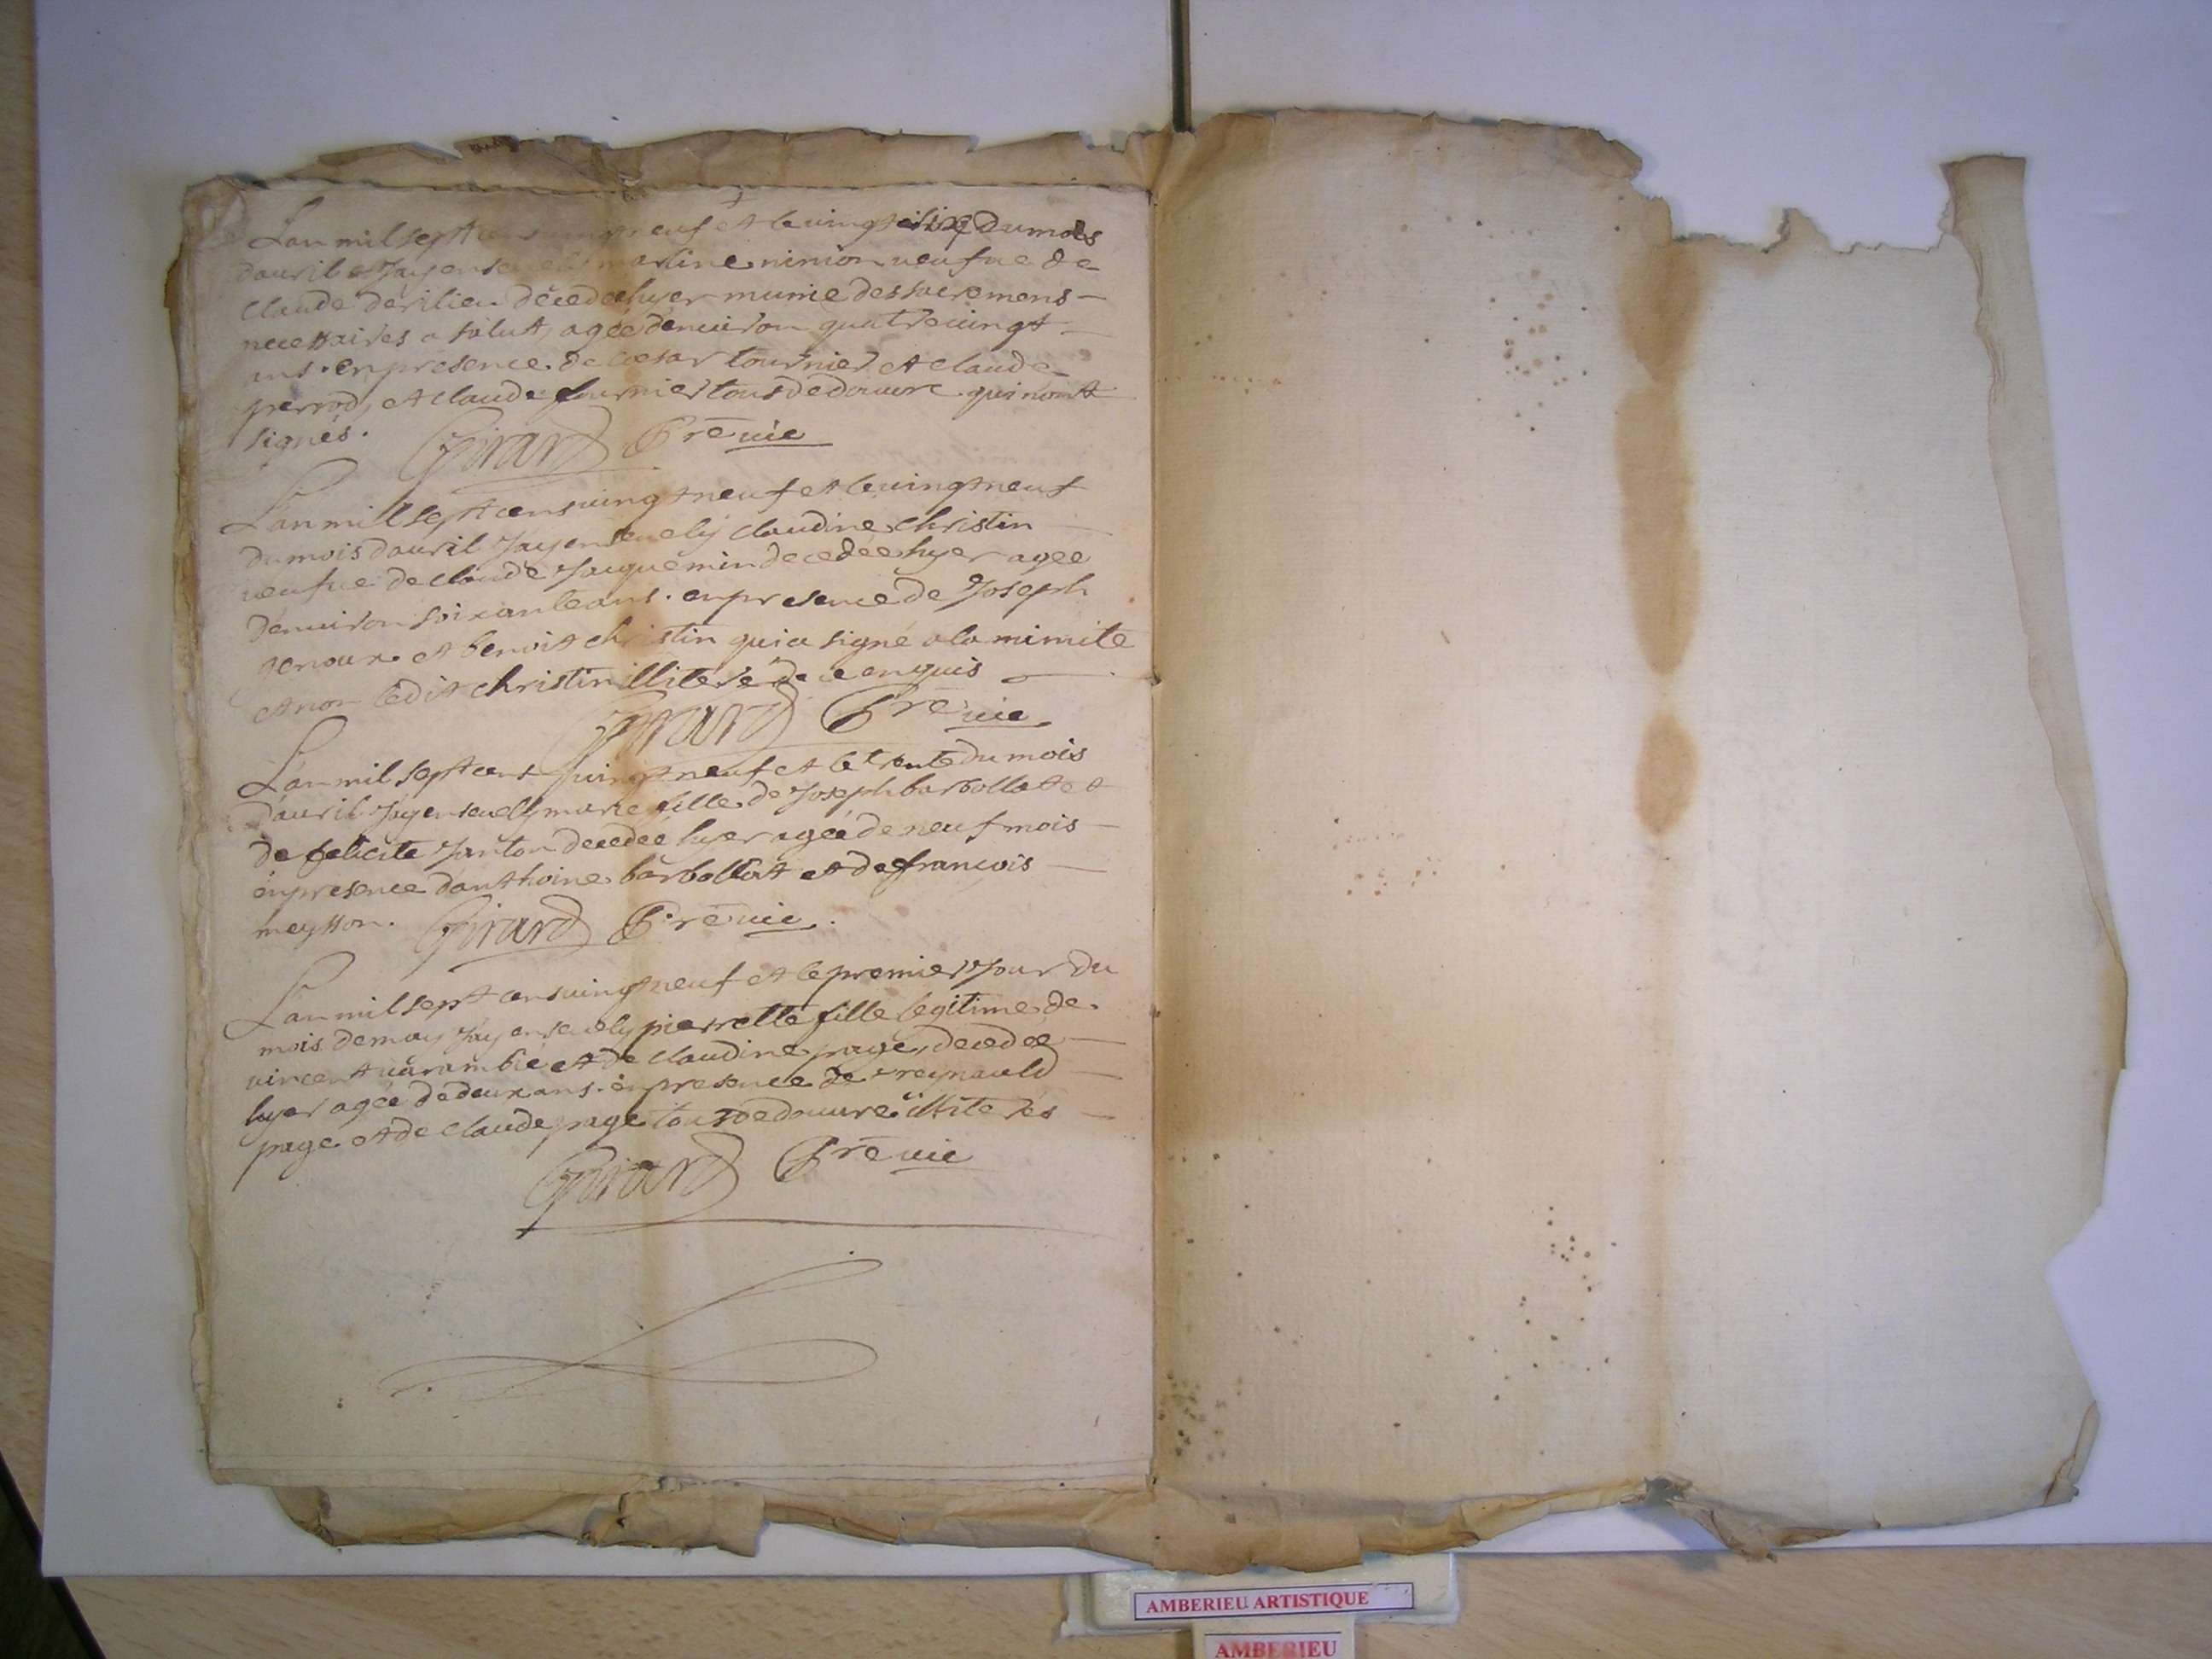 Lan mil sept cens vingt neuf et le vingt du mois
dauril Jay enseuely martine ninion veufue de
claude derilieu décedée hyer munie des sacremens
necessaires a salut, agée denuiron quatre vingt
ans. en présence de cœsar tournier et claude
perrod, et claude fournier tous de douure qui nont
signés. Girard Prê vic
Lan mil sept cens vingt neuf et le vingt neuf
du mois dauril Jay enseuely claudine christin
veufue de claude Jacquemin decedée hyer agee
denuiron soixante ans. en presence de Joseph
genoux et benoit christin qui a signé a la minute
et non ledit christin illiteré de ce enquis
Girard Prê vic
Lan mil sept cens vingt neuf et le trente du mois
dauril Jay enseuely marie fille de Joseph barbollat et
de felicite Janton decedeé hyer ageé de neuf mois
en presence danthoine barbollat et de francois
meysson. Girard Prê vic.
Lan mil sept cens vingt neuf et le premier Jour du
mois de may Jay enseuely pierrette fille legitime de
vincent et de claudine page, decedeé
hyer ageé de deux ans. en presence de reynauld
page et de claude page tous de douure illiterés
Girard Prê vic
AMBERIEU ARTISTIQUE
AMBERIEU